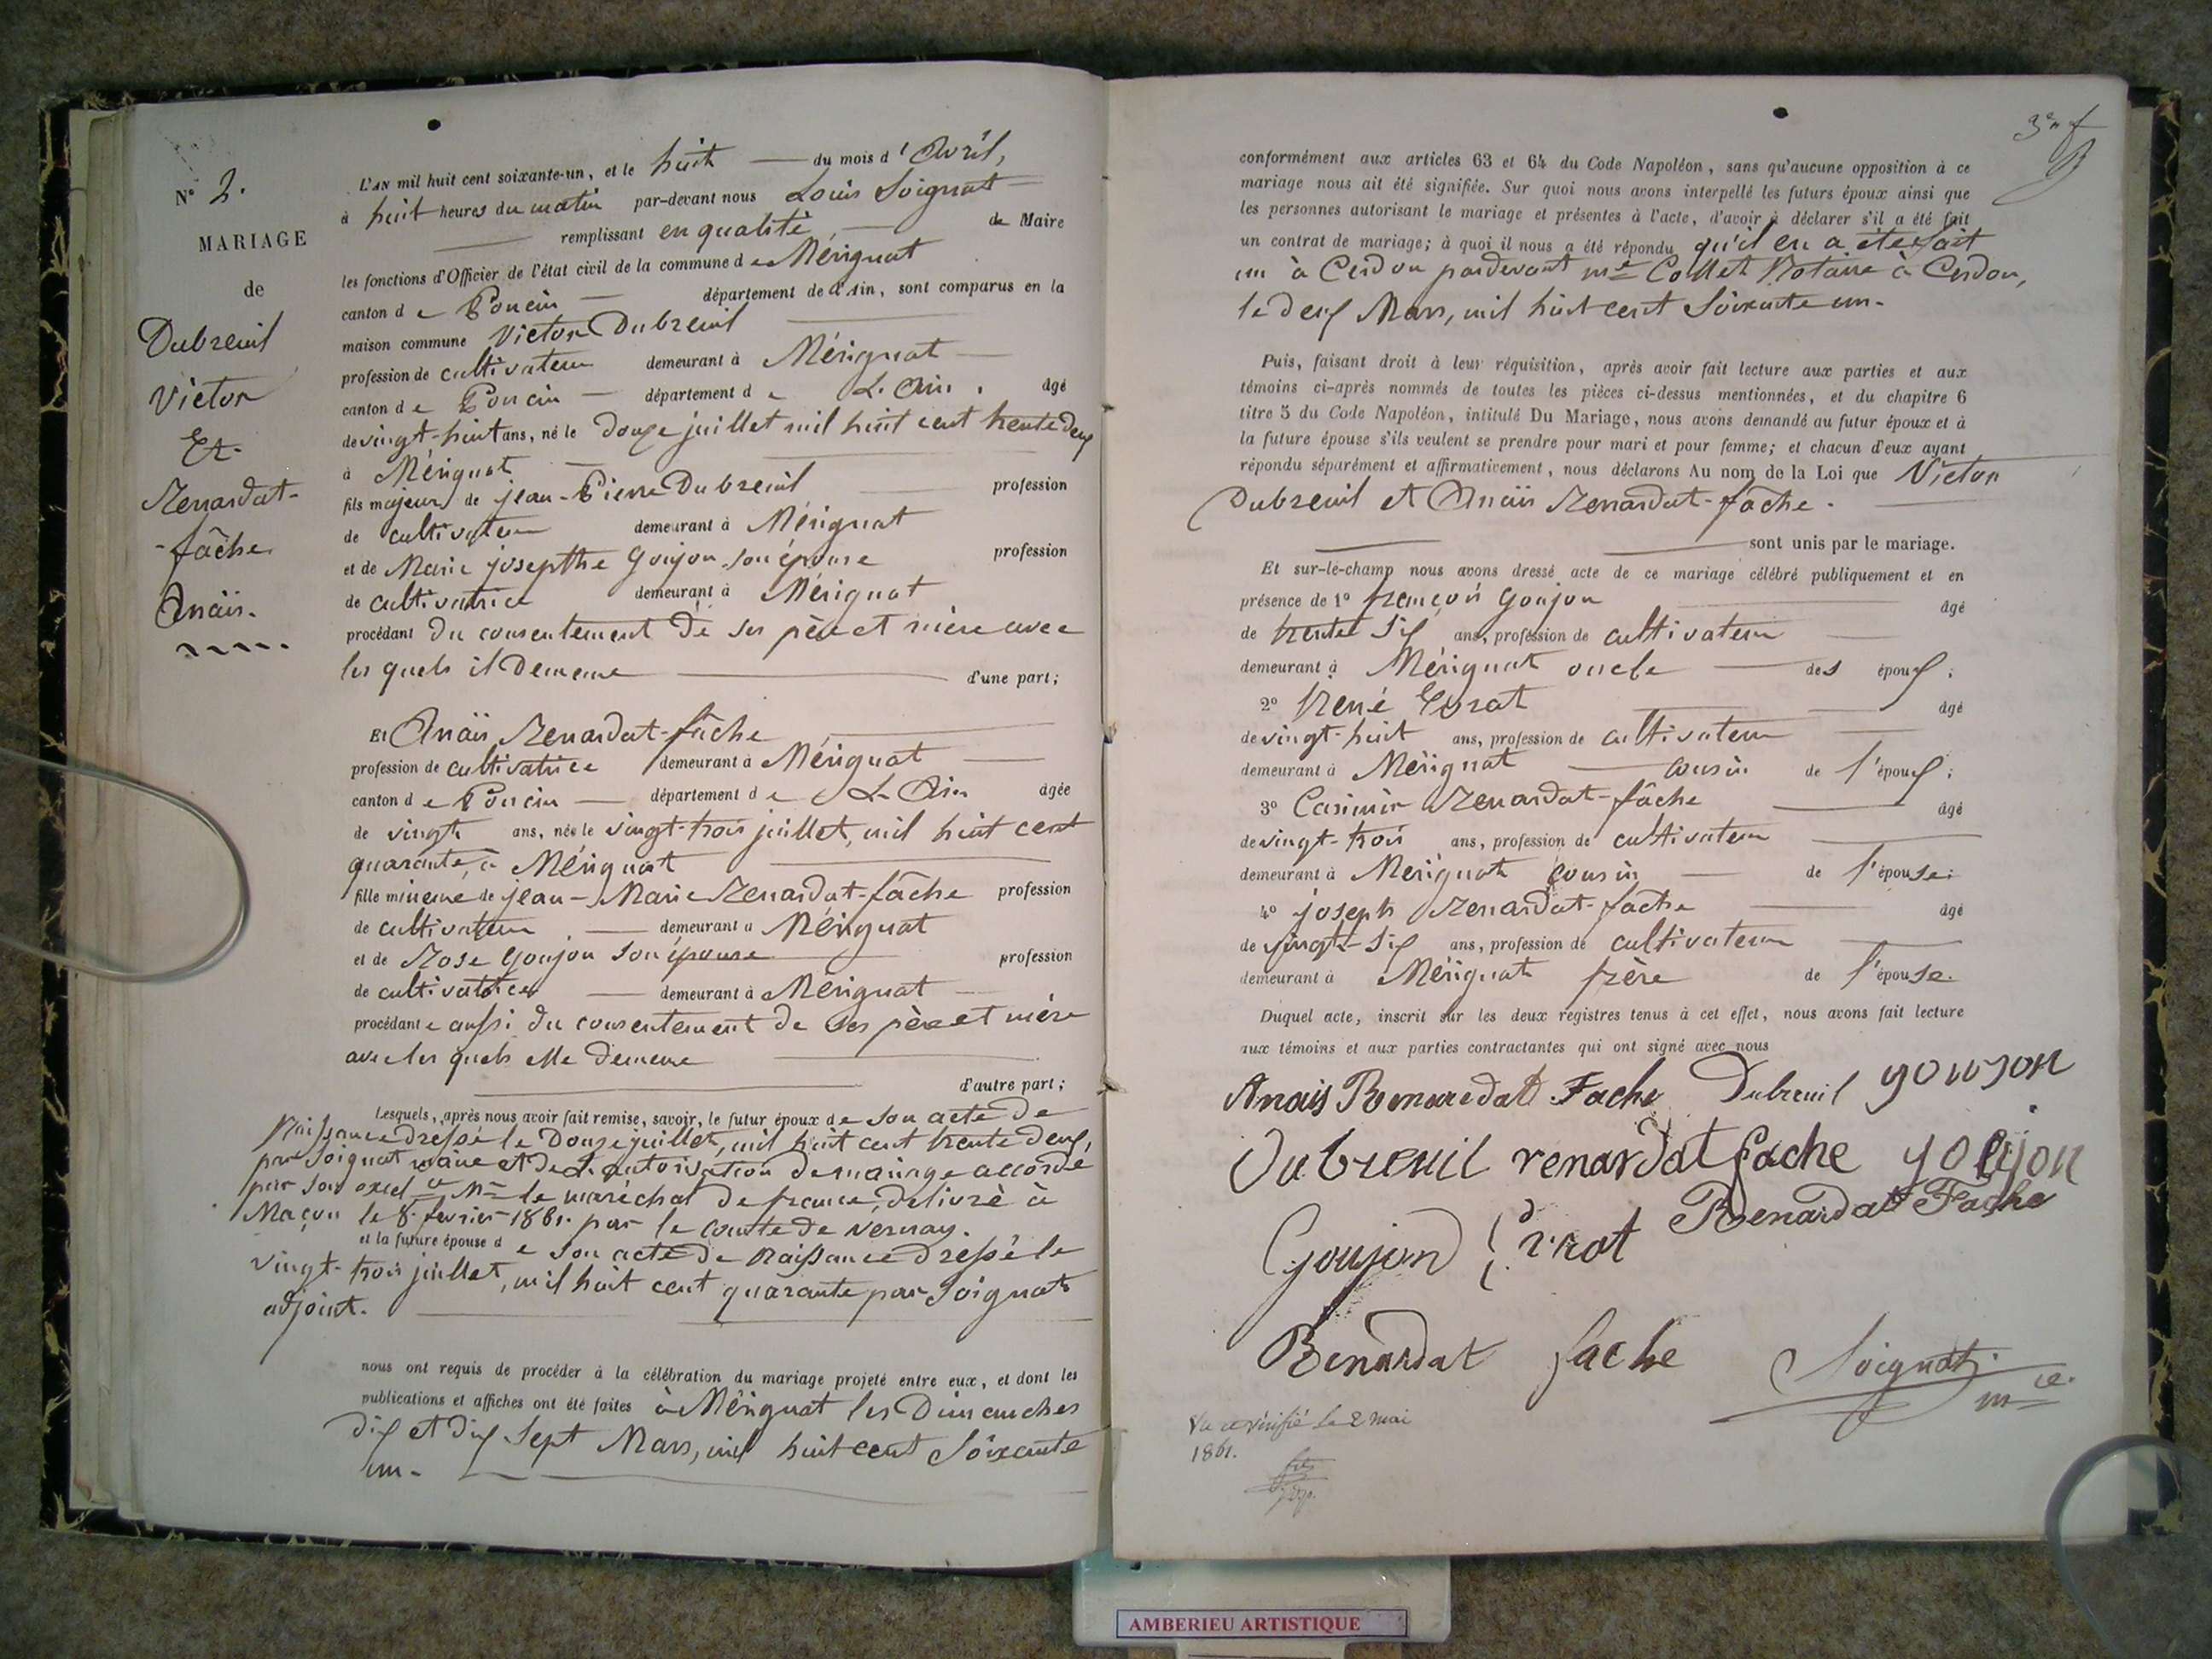 N° 2.
MARIAGE
de
Dubreuil
Victor
Et
Renardat-
-fâche
Anaïs.
L'AN mil huit cent soixante-un, et le huit du mois d'Avril,
à huit heures du matin par-devant nous Louis Soignat
remplissant en qualité de Maire
les fonctions d'Officier de l'état civil de la commune de Mérignat
canton de Poncin département de l'Ain, sont comparus en la
maison commune Victor Dubreuil
profession de cultivateur demeurant à Mérignat
canton de Poncin département de L'Ain. âgé
de vingt-huit ans, né le douze juillet mil huit cent trente deux
à Mérignat
fils majeur de jean-Pierre Dubreuil profession
de cultivateur demeurant à Mérignat
et de Marie josepthe Goujon son épouse profession
de cultivatrice demeurant à Mérignat
procédant du consentement de ses père et mère avec
les quels il demeure d'une part;
Et Anaïs Renardat-fâche
profession de cultivatrice demeurant à Mérignat
canton de Poncin département de L'Ain âgée
de vingt ans, née le vingt-trois juillet, mil huit cent
quarante, à Mérignat
fille mineure de jean-Marie Renardat-fâche profession
de cultivateur demeurant à Mérignat
et de Rose Goujon son épouse profession
de cultivatrice demeurant à Mérignat
procédante aussi du consentement de ses père et mère
avec les quels elle demeure
d'autre part;
Lesquels, après nous avoir fait remise, savoir, le futur époux de son acte de
Naissance dressé le Douze juillet, mil huit cent trente deux,
par Soignat maire et de L'autorisation de mariage accordé
par son excel ce Mr le maréchal de france, delivré à
Maçon le 8 fevrier 1861. par le comte de vernay.
et la future épouse de son acte de Naissance dressé le
vingt-trois juillet, mil huit cent quarante par Soignat
adjoint.
nous ont requis de procéder à la célébration du mariage projeté entre eux, et dont les
publications et affiches ont été faites à Mérignat les Dimanches
dix et dix sept Mars, mil huit cent soixante
un.
3e f
conformément aux articles 63 et 64 du Code Napoléon, sans qu'aucune opposition à ce
mariage nous ait été signifiée. Sur quoi nous avons interpellé les futurs époux ainsi que
les personnes autorisant le mariage et présentes à l'acte, d'avoir à déclarer s'il a été fait
un contrat de mariage; à quoi il nous a été répondu qu'il en a été fait
un à Cerdon pardevant me Collet Notaire à Cerdon,
le deux Mars, mil huit cent soixante un.
Puis, faisant droit à leur réquisition, après avoir fait lecture aux parties et aux
témoins ci-après nommés de toutes les pièces ci-dessus mentionnées, et du chapitre 6
titre 5 du Code Napoléon, intitulé Du Mariage, nous avons demandé au futur époux et à
la future épouse s'ils veulent se prendre pour mari et pour femme; et chacun d'eux ayant
répondu séparément et affirmativement, nous déclarons Au nom de la Loi que Victor
Dubreuil et Anaïs Renardat-fâche.
sont unis par le mariage.
Et sur-le-champ nous avons dressé acte de ce mariage célébré publiquement et en
présence de 1° françois Goujon âgé
de trente six ans, profession de cultivateur
demeurant à Mérignat oncle des époux;
2° René âgé
de vingt-huit ans, profession de cultivateur
demeurant à Mérignat cousin de l'époux;
3° Casimir Renardat-fâche âgé
de vingt-trois ans, profession de cultivateur
demeurant à Mérignat cousin de l'épouse;
4° joseph Renardat-fache âgé
de vingt-six ans, profession de cultivateur
demeurant à Mérignat frère de l'épouse.
Duquel acte, inscrit sur les deux registres tenus à cet effet, nous avons fait lecture
aux témoins et aux parties contractantes qui ont signé avec nous
Anais Renardat Fache Dubreuil goujon
Dubreuil renardat fache goujon
Goujon Renardat Fache
Renardat fache Soignat
mre
Vu et vérifié le 2 mai
1861.
AMBERIEU ARTISTIQUE